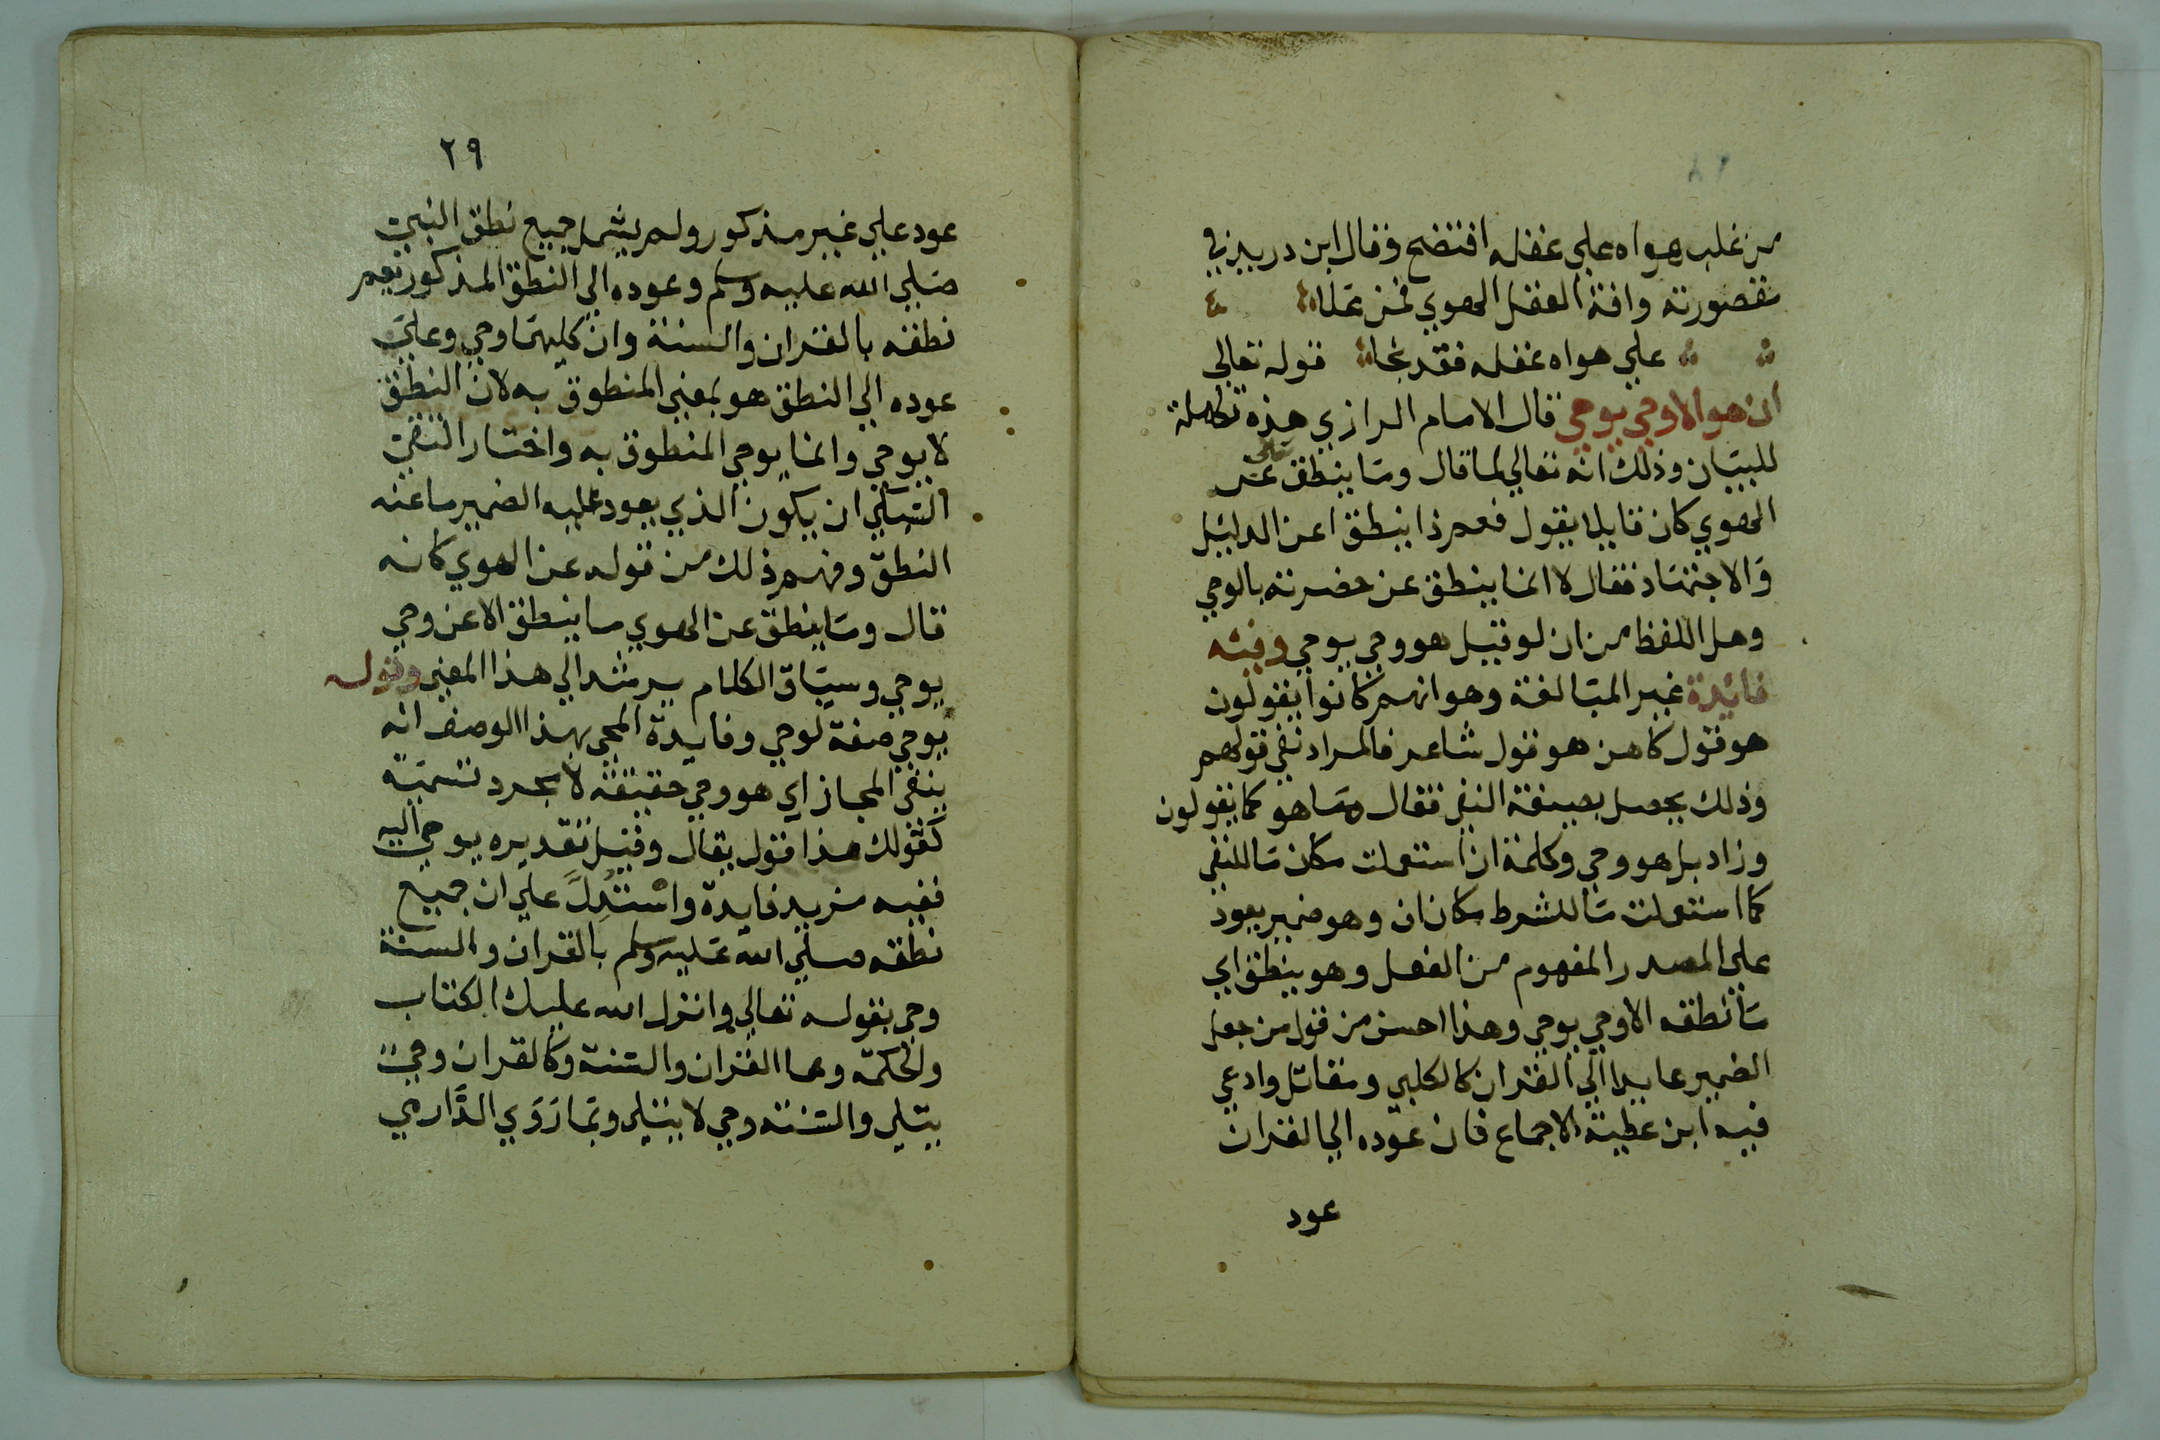 من غلب هواه علي عقله افتضح وقال ابن دريد في
مقصورته وافة العقل الهوي فمن علا
علي هواه عقله فقد نجا قوله تعالي
ان هو الا وحي يوحي قال الامام الرازي هذه تكملة
للبيان وذلك انه تعالي لما قال وما ينطق عن
الهوي كان قايلا يقول فعم ذا ينطق اعن الدليل
والاجتهاد فقال لا انما ينطق عن حضرته بالوحي
وهل اللفظ من ان لو قيل هو وحي يوحي وفيه
فائدة غير المبالغة وهو انهم كانوا يقولون
هو قول كاهن هو قول شاعر فالمراد نفي قولهم
وذلك يحصل بصيغة النفي فقال وما هو كما يقولون
وزاد بل هو وحي وكلمة ان استعملت مكان ما للنفي
كما استعملت ما للشرط مكان ان وهو ضمير يعود
علي المصدر المفهوم من الفعل وهو ينطق اي
ما نطقه الا وحي يوحي وهذا احسن من قول من جعل
الضمير عايدا الي القران كالكلبي ومقاتل وادعي
فيه ابن عطية الاجماع فان عوده الي القران
عود
٢٩
عود علي غير مذكور ولم يشمل جميع نطق النبي
صلي الله عليه وسلم وعوده الي النطق المذكور يعم
نطقه بالقران والسنة وان كليهما وحي وعلي
عوده الي النطق هو بمعني المنطوق به لان النطق
لا يوحي وانما يوحي المنطوق به واختار التقي
السبكي ان يكون الذي يعود عليه الضمير ما عنه
النطق وفهم ذلك من قوله عن الهوي كانه
قال وما ينطق عن الهوي ما ينطق الا عن وحي
يوحي وسياق الكلام يرشد الي هذا المعني وقوله
يوحي صفة لوحي وفايدة المجي بهذا الوصف انه
ينفي المجاز اي هو وحي حقيقة لا بمجرد تسمية
كقولك هذا قول يقال وقيل تقديره يوحي اليه
ففيه مزيد فايدة واستدل علي ان جميع
نطقه صلي الله عليه وسلم بالقران والسنة
وحي بقوله تعالي وانزل الله عليك الكتاب
والحكمة وهما القران والسنة وكالقران وحي
يتلي والسنة وحي لا يتلي وبما روي الدارمي